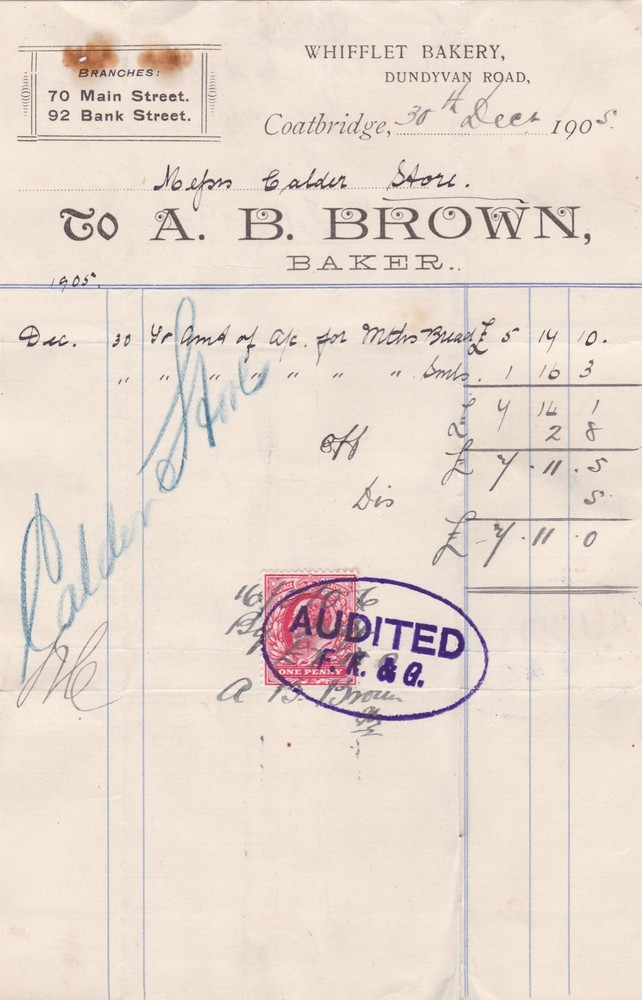 BRANCHES:
70 Main Street.
92 Bank Street.
WHIFFLET BAKERY,
DUNDYVAN ROAD,
Coatbridge, 30th Decr 1905.
Messrs Calder Store.
To A. B. BROWN,
BAKER..
1905.
Dec. 30 Yr Amt of a/c. for Mths Bread £ 5 14 10.
" " " " " " " Smls. 1 16 3
7 11 1
Off 2 8
£ 7 . 11 . 5
Dis 5
£ 7 . 11 . 0
Calder Store
ONE PENNY
AUDITED
& G.
A B. Brown